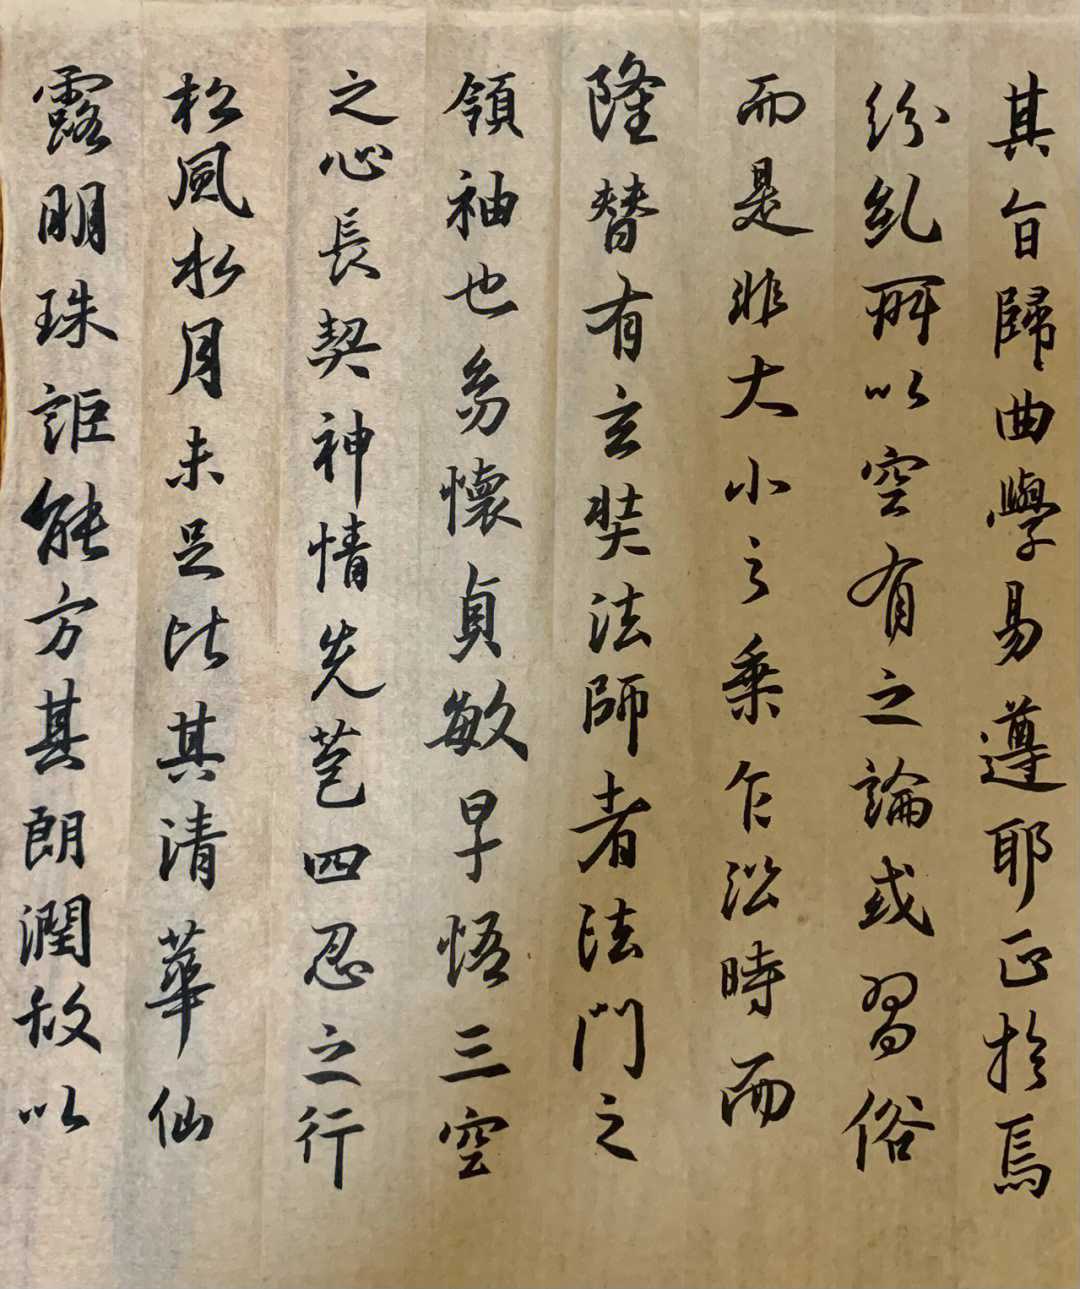 其旨歸曲學易遵耶正於焉
紛糺所以空有之論或習俗
而是非大小之乘乍沿時而
隆替有玄奘法師者法門之
領袖也幼懷貞敏早悟三空
之心長契神情先苞四忍之行
松風松月未足比其清華仙
露明珠詎能方其朗潤故以